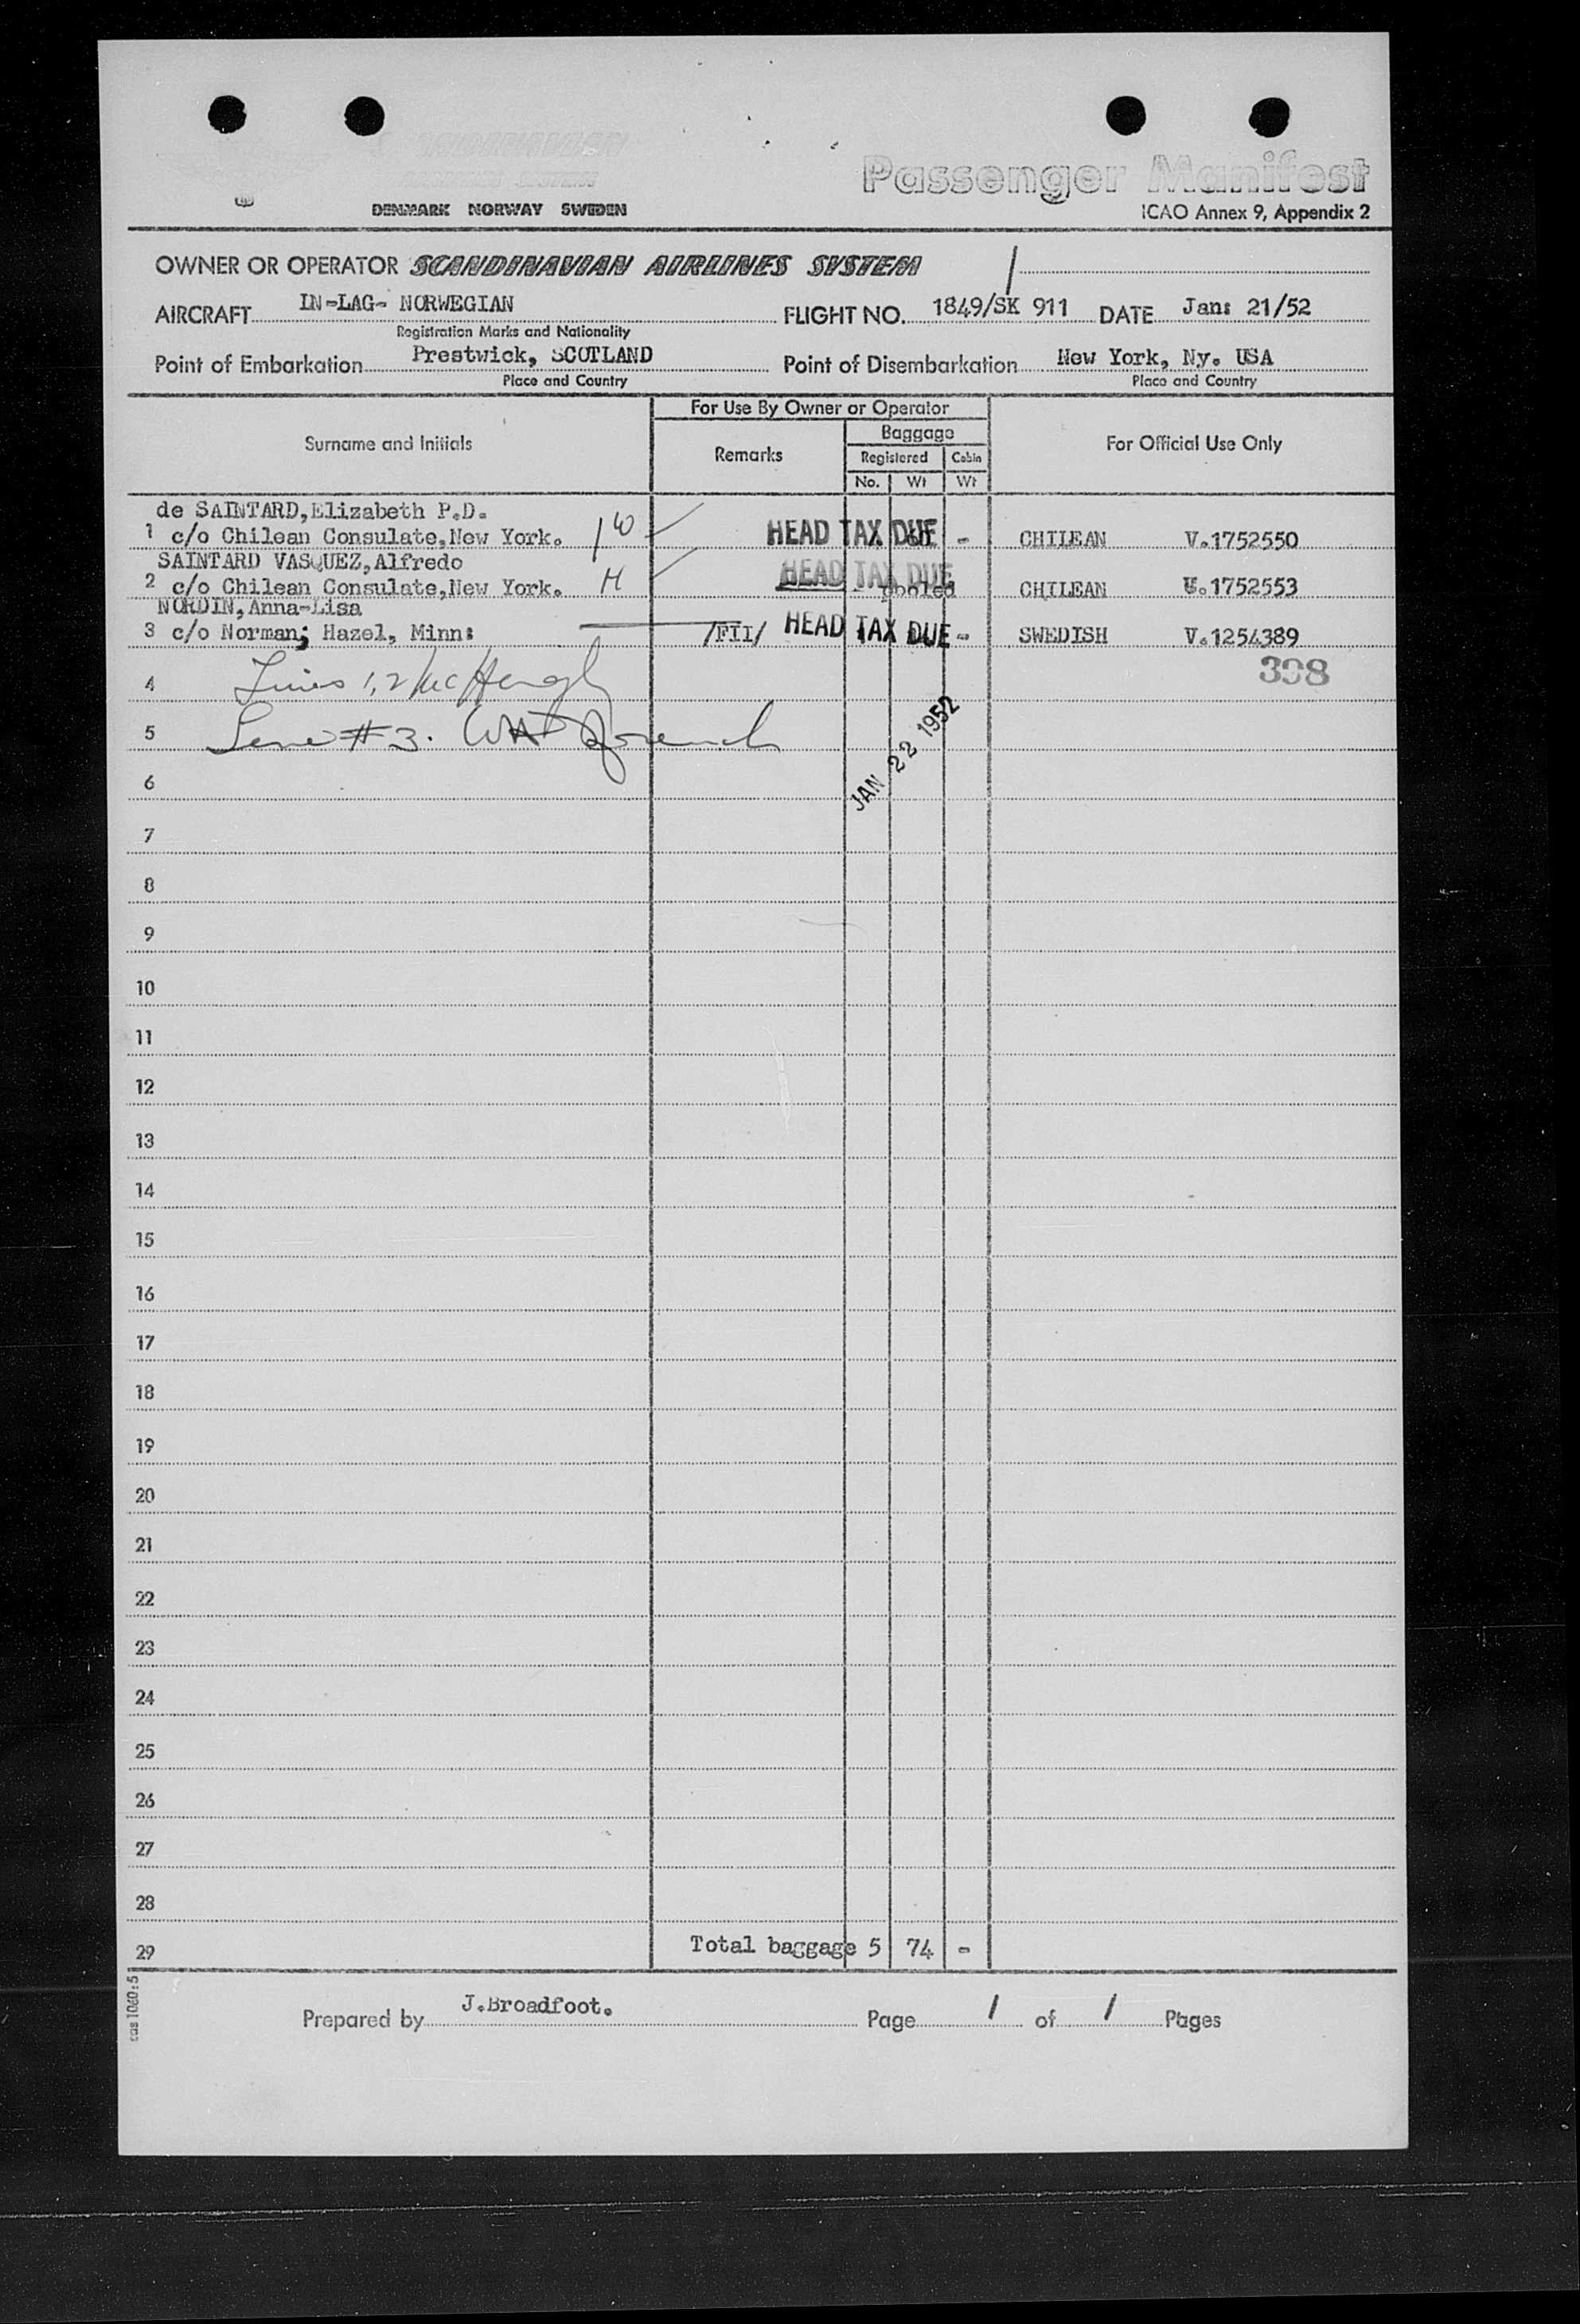 Passenger Manifest
DENMARK NORWAY SWEDEN
ICAO Annex 9, Appendix 2
OWNER OR OPERATOR SCANDINAVIAN AIRLINES SYSTEM
AIRCRAFT LN-LAG- NORWEGIAN FLIGHT NO. 1849/SK 911 DATE Jan: 21/52
Registration Marks and Nationality
Point of Embarkation Prestwick, SCOTLAND Point of Disembarkation New York, Ny. USA
Place and Country Place and Country
For Use By Owner or Operator
Surname and Initials Remarks Baggage For Official Use Only
Registered Cabin
No. Wt Wt
de SAINTARD,Elizabeth P.D.
1 c/o Chilean Consulate,New York. W HEAD TAX DUE - CHILEAN V.1752550
SAINTARD VASQUEZ,Alfredo
2 c/o Chilean Consulate,New York. H HEAD TAX DUE - pooled CHILEAN V.1752553
NORDIN,Anna-Lisa
3 c/o Norman; Hazel, Minn: /FII/ HEAD TAX DUE - SWEDISH V.1254389
398
4 Lines 1,2
5 Line #3.
JAN 22 1952
6
7
8
9
10
11
12
13
14
15
16
17
18
19
20
21
22
23
24
25
26
27
28
29 Total baggage 5 74 -
sas 1060:5
Prepared by J.Broadfoot. Page 1 of 1 Pages